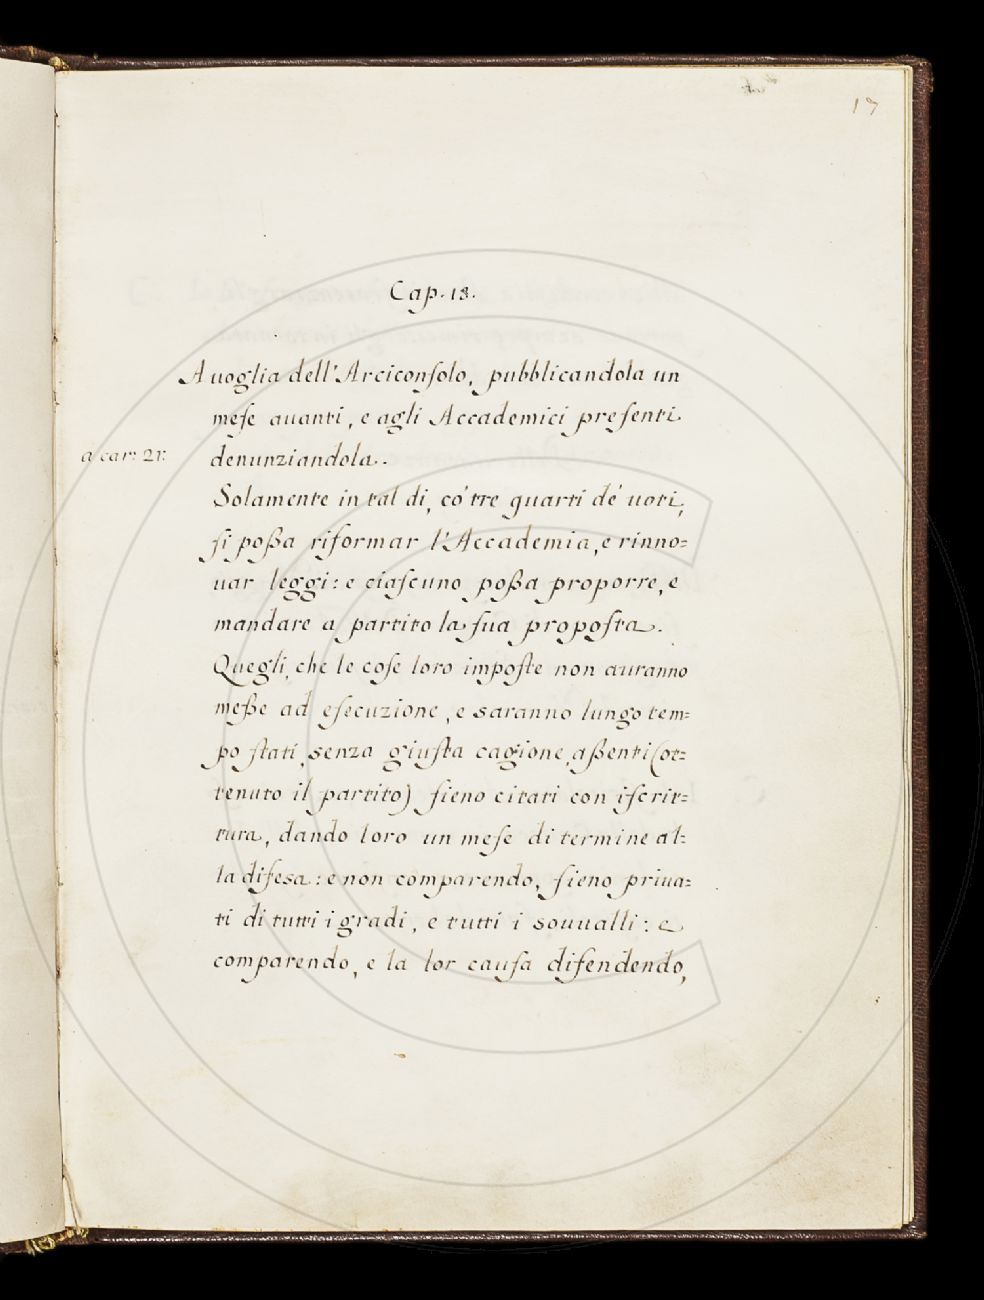 17
Cap. 13.
A uoglia dell'Arciconſolo, pubblicandola un
meſe auanti, e agli Accademici preſenti
a car: 21:
denunziandola.
Solamente in tal di, co' tre quarti de' uoti,
ſi poßa riformar l'Accademia, e rinno=
uar leggi: e ciaſcuno poßa proporre, e
mandare a partito la ſua propoſta.
Quegli, che le coſe loro impoſte non auranno
meße ad eſecuzione, e saranno lungo tem=
po ſtati, senza giuſta cagione, aßenti (ot=
tenuto il partito) ſieno citati con iſcrit=
tura, dando loro un meſe di termine al=
la difesa: e non comparendo, ſieno priua=
ti di tutti i gradi, e tutti i souualli: e
comparendo, e la lor cauſa difendendo,